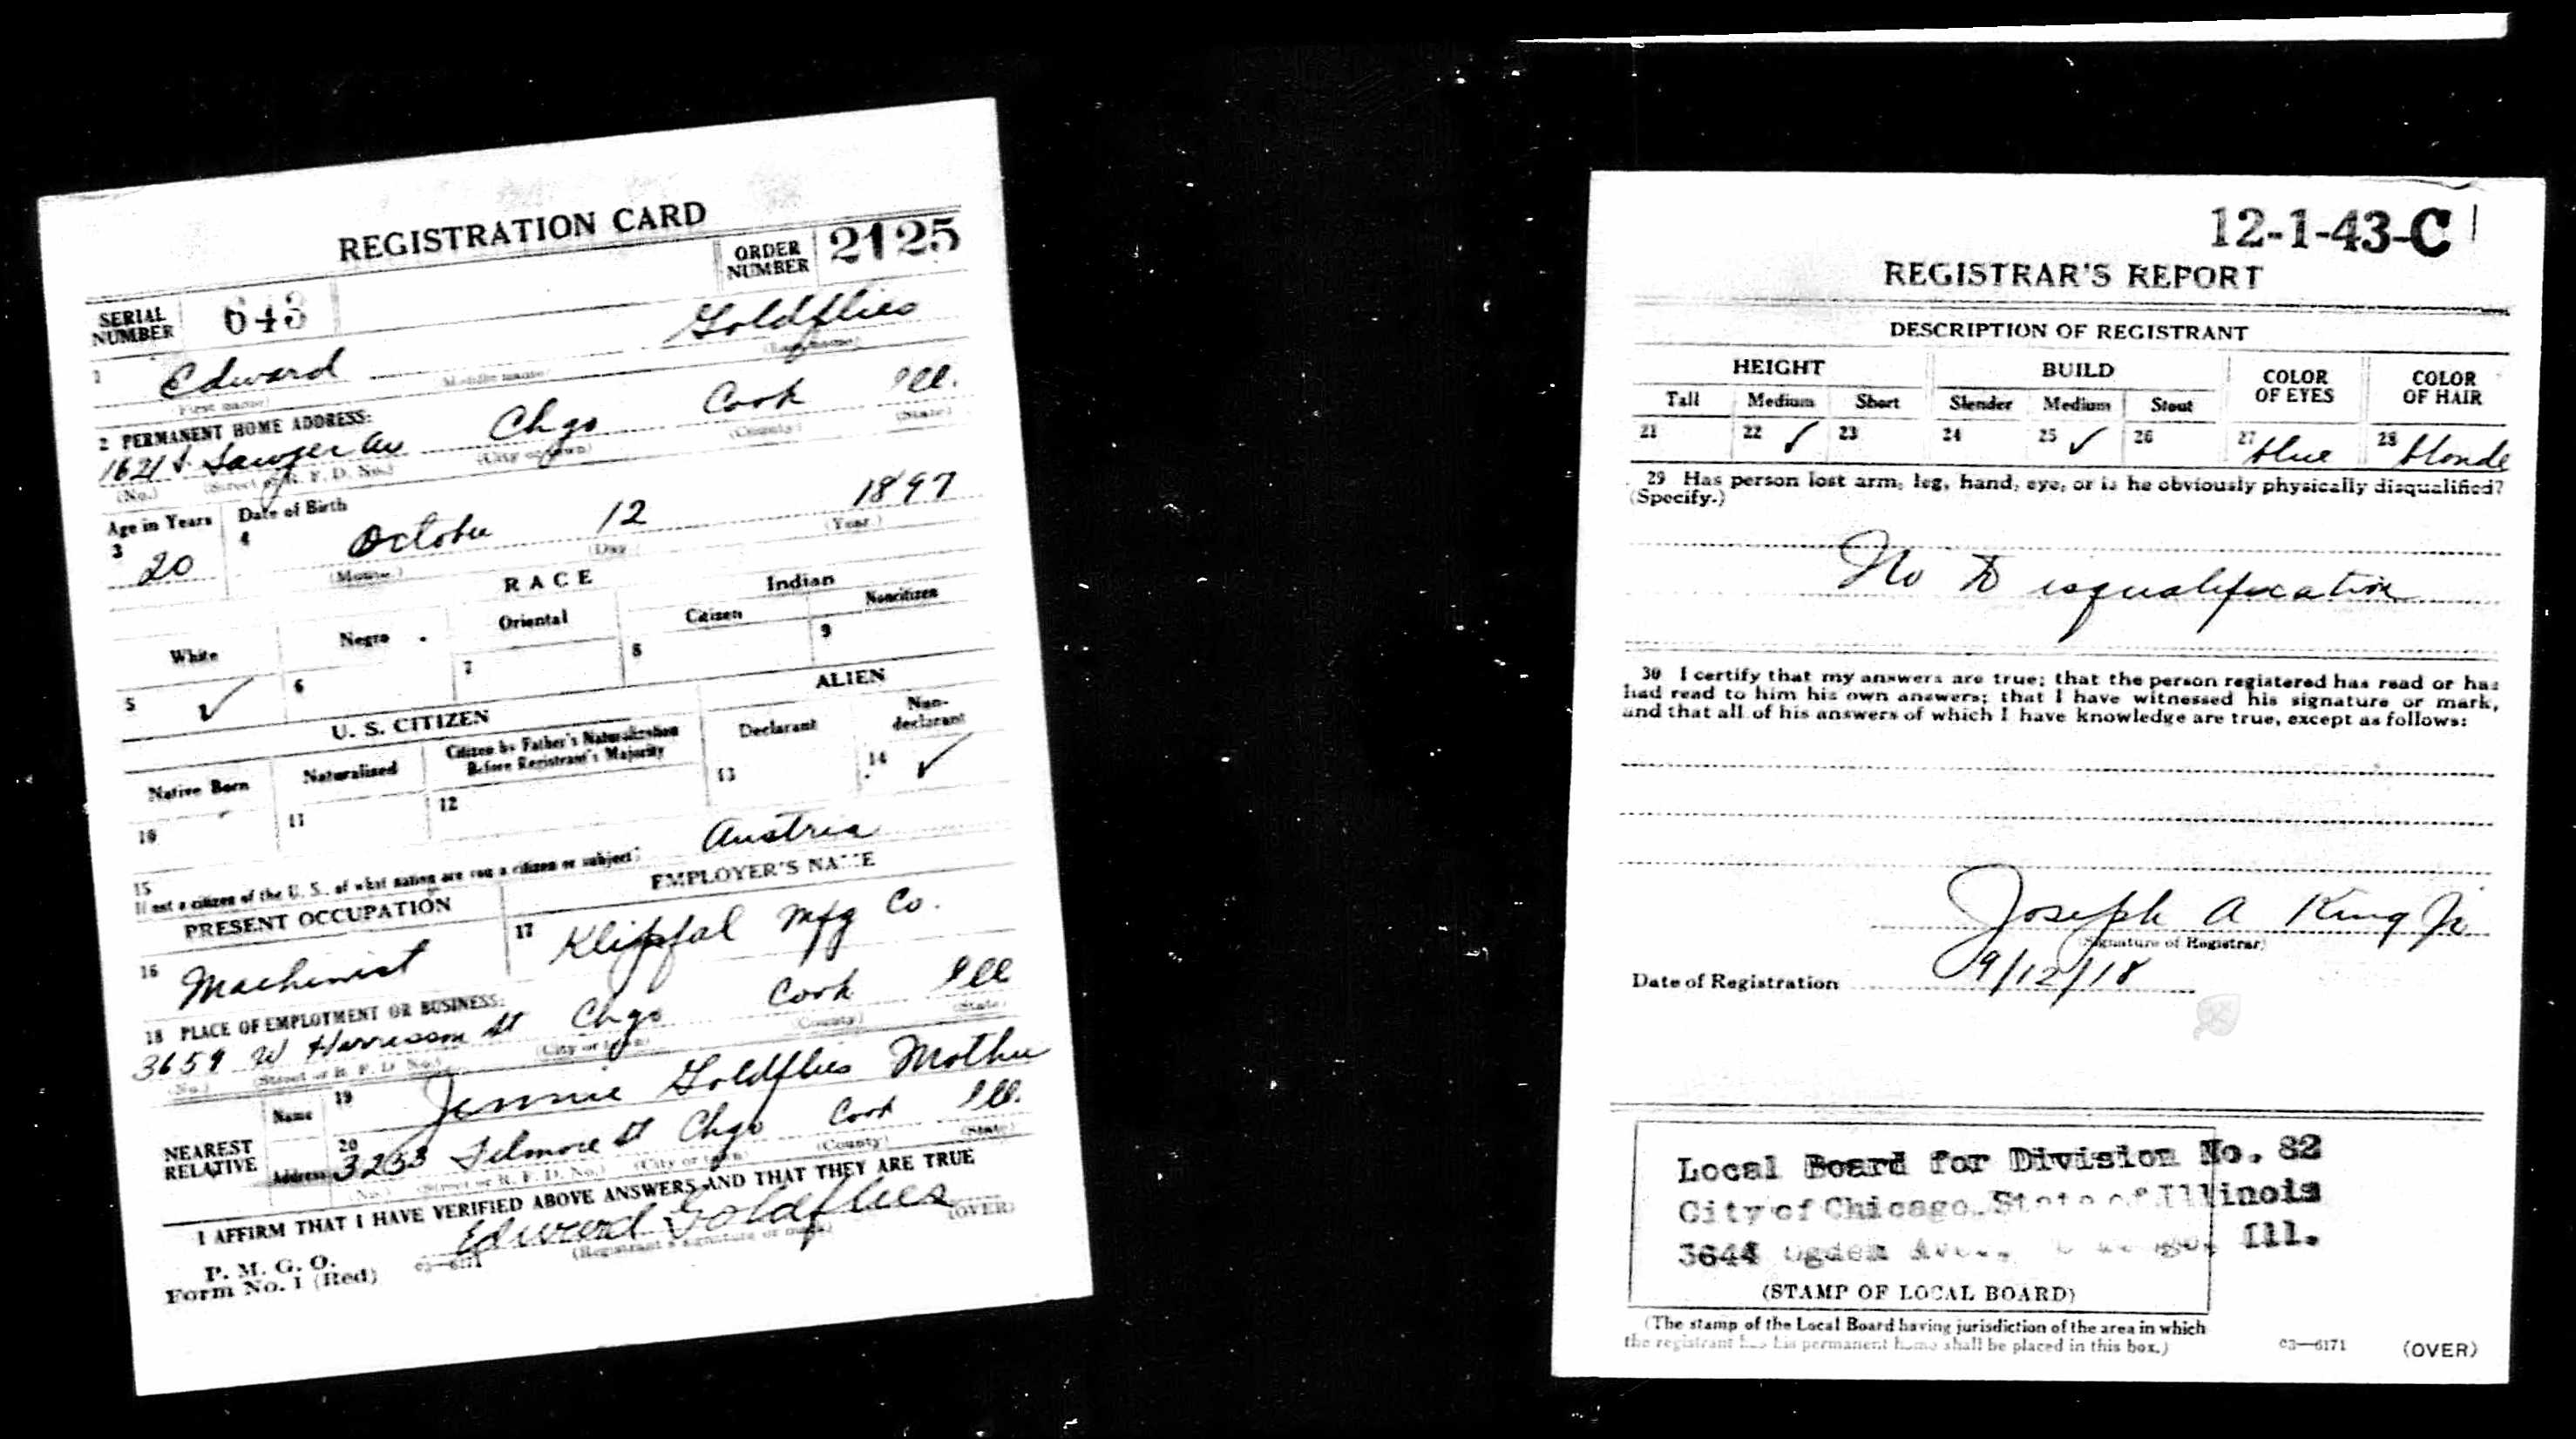 REGISTRATION CARD
SERIAL NUMBER 643 ORDER NUMBER 2125
1 Edward Goldflies
(First name) (Middle name) (Last name)
2 PERMANENT HOME ADDRESS:
1621 S. Sawyer Av Chgo Cook Ill.
(No.) (Street or R. F. D. No.) (City or town) (County) (State)
Age in Years Date of Birth
3 20 4 October 12 1897
(Month.) (Day.) (Year.)
RACE
White Negro Oriental Indian
Citizen Noncitizen
5 ✓ 6 7 8 9
U. S. CITIZEN ALIEN
Native Born Naturalized Citizen by Father's Naturalization Before Registrant's Majority Declarant Non-declarant
10 11 12 13 14 ✓
15 If not a citizen of the U. S., of what nation are you a citizen or subject? Austria
PRESENT OCCUPATION EMPLOYER'S NAME
16 Machinist 17 Klipfal Mfg Co.
18 PLACE OF EMPLOYMENT OR BUSINESS:
3659 W Harrison St Chgo Cook Ill
(No.) (Street or R. F. D. No.) (City or town) (County) (State)
NEAREST RELATIVE
Name 19 Jennie Goldflies Mother
Address 20 3253 Filmore St Chgo Cook Ill.
(No.) (Street or R. F. D. No.) (City or town) (County) (State)
I AFFIRM THAT I HAVE VERIFIED ABOVE ANSWERS AND THAT THEY ARE TRUE
P. M. G. O.
Form No. 1 (Red) 03—6171 Edward Goldflies
(Registrant's signature or mark) (OVER)
12-1-43-C
REGISTRAR'S REPORT
DESCRIPTION OF REGISTRANT
HEIGHT BUILD COLOR OF EYES COLOR OF HAIR
Tall Medium Short Slender Medium Stout
21 22 ✓ 23 24 25 ✓ 26 27 blue 28 blonde
29 Has person lost arm, leg, hand, eye, or is he obviously physically disqualified?
(Specify.)
No Disqualification
30 I certify that my answers are true; that the person registered has read or has
had read to him his own answers; that I have witnessed his signature or mark,
and that all of his answers of which I have knowledge are true, except as follows:
Joseph A King Jr
(Signature of Registrar)
Date of Registration 9/12/18
Local Board for Division No. 82
City of Chicago, State of Illinois
3644 Ogden Ave., Chicago, Ill.
(STAMP OF LOCAL BOARD)
(The stamp of the Local Board having jurisdiction of the area in which
the registrant has his permanent home shall be placed in this box.)
03—6171 (OVER)